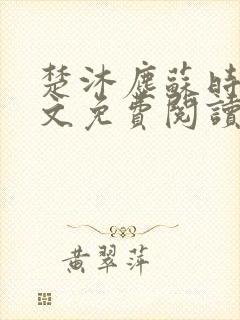 楚沐塵蘇時
文免費閱讀
黃翠萍